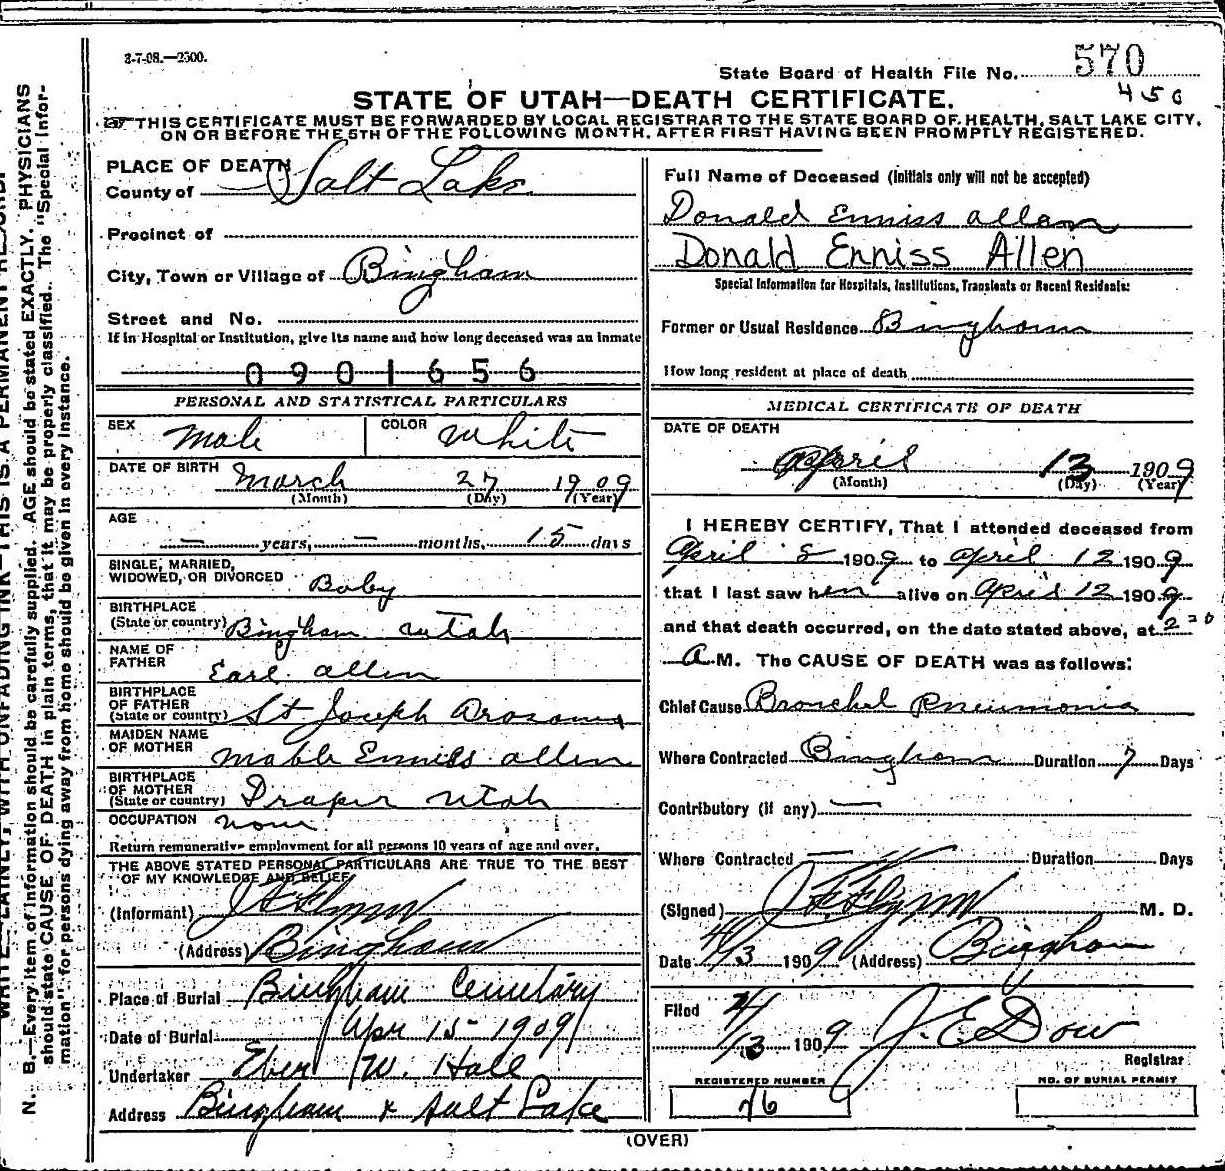 3-7-08.—2500.
State Board of Health File No. 570
450
STATE OF UTAH—DEATH CERTIFICATE.
THIS CERTIFICATE MUST BE FORWARDED BY LOCAL REGISTRAR TO THE STATE BOARD OF HEALTH, SALT LAKE CITY,
ON OR BEFORE THE 5TH OF THE FOLLOWING MONTH, AFTER FIRST HAVING BEEN PROMPTLY REGISTERED.
PLACE OF DEATH
County of Salt Lake
Precinct of
City, Town or Village of Bingham
Street and No.
If in Hospital or Institution, give its name and how long deceased was an inmate
0901656
PERSONAL AND STATISTICAL PARTICULARS
SEX Male COLOR White
DATE OF BIRTH March 27 1909
(Month) (Day) (Year)
AGE
— years, — months, 15 days
SINGLE, MARRIED,
WIDOWED, OR DIVORCED Baby
BIRTHPLACE
(State or country) Bingham Utah
NAME OF
FATHER Earl Allen
BIRTHPLACE
OF FATHER
(State or country) St Joseph
MAIDEN NAME
OF MOTHER Mable Enniss Allen
BIRTHPLACE
OF MOTHER
(State or country) Draper Utah
OCCUPATION None
Return remunerative employment for all persons 10 years of age and over.
THE ABOVE STATED PERSONAL PARTICULARS ARE TRUE TO THE BEST
OF MY KNOWLEDGE AND BELIEF
(Informant) J F Flynn
(Address) Bingham
Place of Burial Bingham Cemetary
Date of Burial Apr 15-1909
Undertaker Eber W. Hall
Address Bingham & Salt Lake
Full Name of Deceased (Initials only will not be accepted)
Donald Enniss Allen
Donald Enniss Allen
Special Information for Hospitals, Institutions, Transients or Recent Residents:
Former or Usual Residence Bingham
How long resident at place of death
MEDICAL CERTIFICATE OF DEATH
DATE OF DEATH
April 13 1909
(Month) (Day) (Year)
I HEREBY CERTIFY, That I attended deceased from
April 8 1909 to April 12 1909
that I last saw him alive on April 12 1909
and that death occurred, on the date stated above, at 2 20
A M. The CAUSE OF DEATH was as follows:
Chief Cause Bronchel Pneumonia
Where Contracted Bingham Duration 7 Days
Contributory (if any) —
Where Contracted — Duration Days
(Signed) J F Flynn M. D.
Date 4/13 1909 (Address) Bingham
Filed 4/13 1909 J. E. Dow
Registrar
REGISTERED NUMBER
76
NO. OF BURIAL PERMIT
(OVER)
WRITE PLAINLY, WITH UNFADING INK—THIS IS A PERMANENT RECORD.
N. B.—Every item of information should be carefully supplied. AGE should be stated EXACTLY. PHYSICIANS
should state CAUSE OF DEATH in plain terms, that it may be properly classified. The "Special Infor-
mation" for persons dying away from home should be given in every instance.